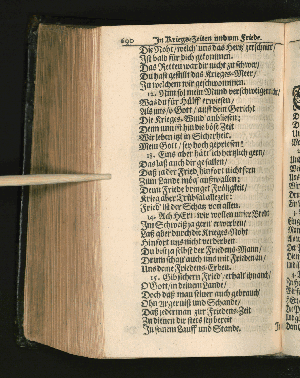 690 In Kriegs-Zeiten und um Friede.
Die Noht / welch' uns das Hertz zerschnitt /
Ist bald für dich gekommen.
Das Retten war dir nicht zu schwer /
Du hast gestillt das Krieges-Meer /
Zu welchem wir geschwommen.
12. Nun sol mein Mund verschweigen nicht /
Was du für Hülff' erwiesen /
Als uns / o Gott / auß dem Gesicht
Die Krieges-Wund' anbliesen:
Denn nun ist hin die böse Zeit
Wir leben itzt in Sicherheit.
Mein Gott / sey hoch gepriesen!
13. Eins aber bitt' ich hertzlich gern /
Das laß auch dir gefallen /
Daß ja der Fried' hinfort nicht fern
Zum Lande mög' außwallen:
Denn Friede bringet Frölichkeit /
Krieg aber Trübsal allezeit:
Fried' ist der Schatz von allen.
14. Ach HErr / wir wollen unser Brodt
Im Schweiß ja gern erwerben /
Laß aber durch die Krieges-Noht
Hinfort uns nicht verderben.
Du bist ja selbst der Friedens-Mann /
Drum schau' auch uns mit Frieden an /
Uns deine Friedens-Erben.
15. Gib sichern Fried' / erhalt ihn auch /
O Gott / in deinem Lande /
Doch daß man seiner auch gebrauch'
Ohn Aergerniß und Schande /
Daß jederman zur Friedens-Zeit
Zu dienen dir stets sey bereit
In seinem Lauff und Stande.